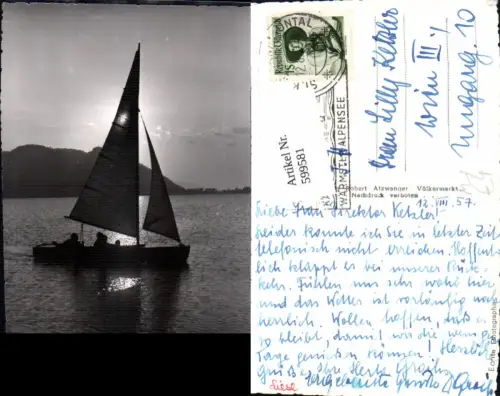 ONTAL
ST. K
WARMSTER ALPENSEE
Artikel Nr.
599581
Frau Lilly Ketzler
Wien III/
Ungarg. 10
Atzwanger Völkermarkt
Nachdruck verboten
12. VIII. 57.
Liebe Frau Direktor Ketzler!
Leider konnte ich Sie in letzter Zeit
telefonisch nicht erreichen. Hoffent-
lich klappt es bei unserer Rück-
kehr. Fühlen uns sehr wohl hier
und das Wetter ist vorläufig
herrlich. Wollen hoffen, daß es
so bleibt, damit wir die wenigen
Tage genießen können! Herzlich
Grüße Ihre Herta
Liesl
Echte Photographie